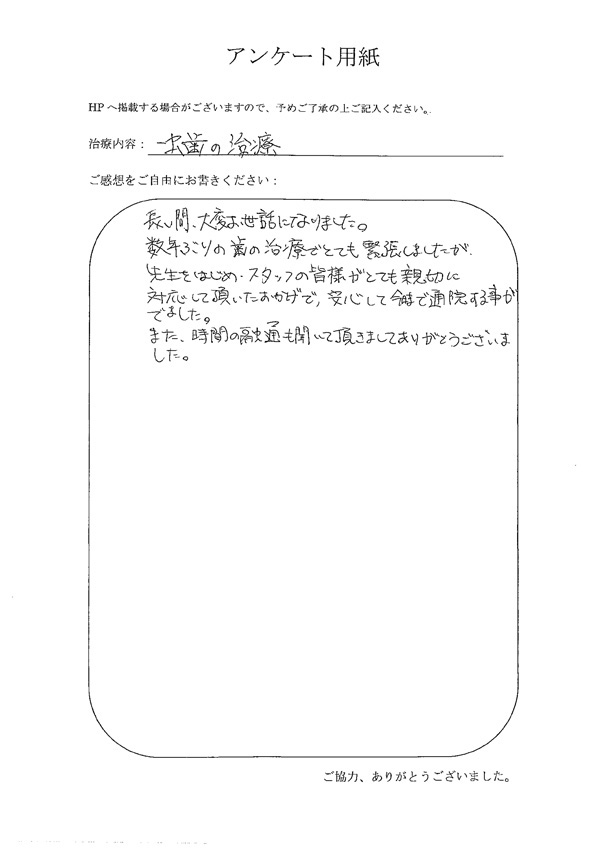 アンケート用紙
HPへ掲載する場合がございますので、予めご了承の上ご記入ください。
治療内容： 虫歯の治療
ご感想をご自由にお書きください：
長い間、大変お世話になりました。
数年ぶりの歯の治療でとても緊張しましたが、
先生をはじめ、スタッフの皆様がとても親切に
対応して頂いたおかげで、安心して今日まで通院する事が
でました。
また、時間の融通も聞いて頂きましてありがとうございま
した。
ご協力、ありがとうございました。